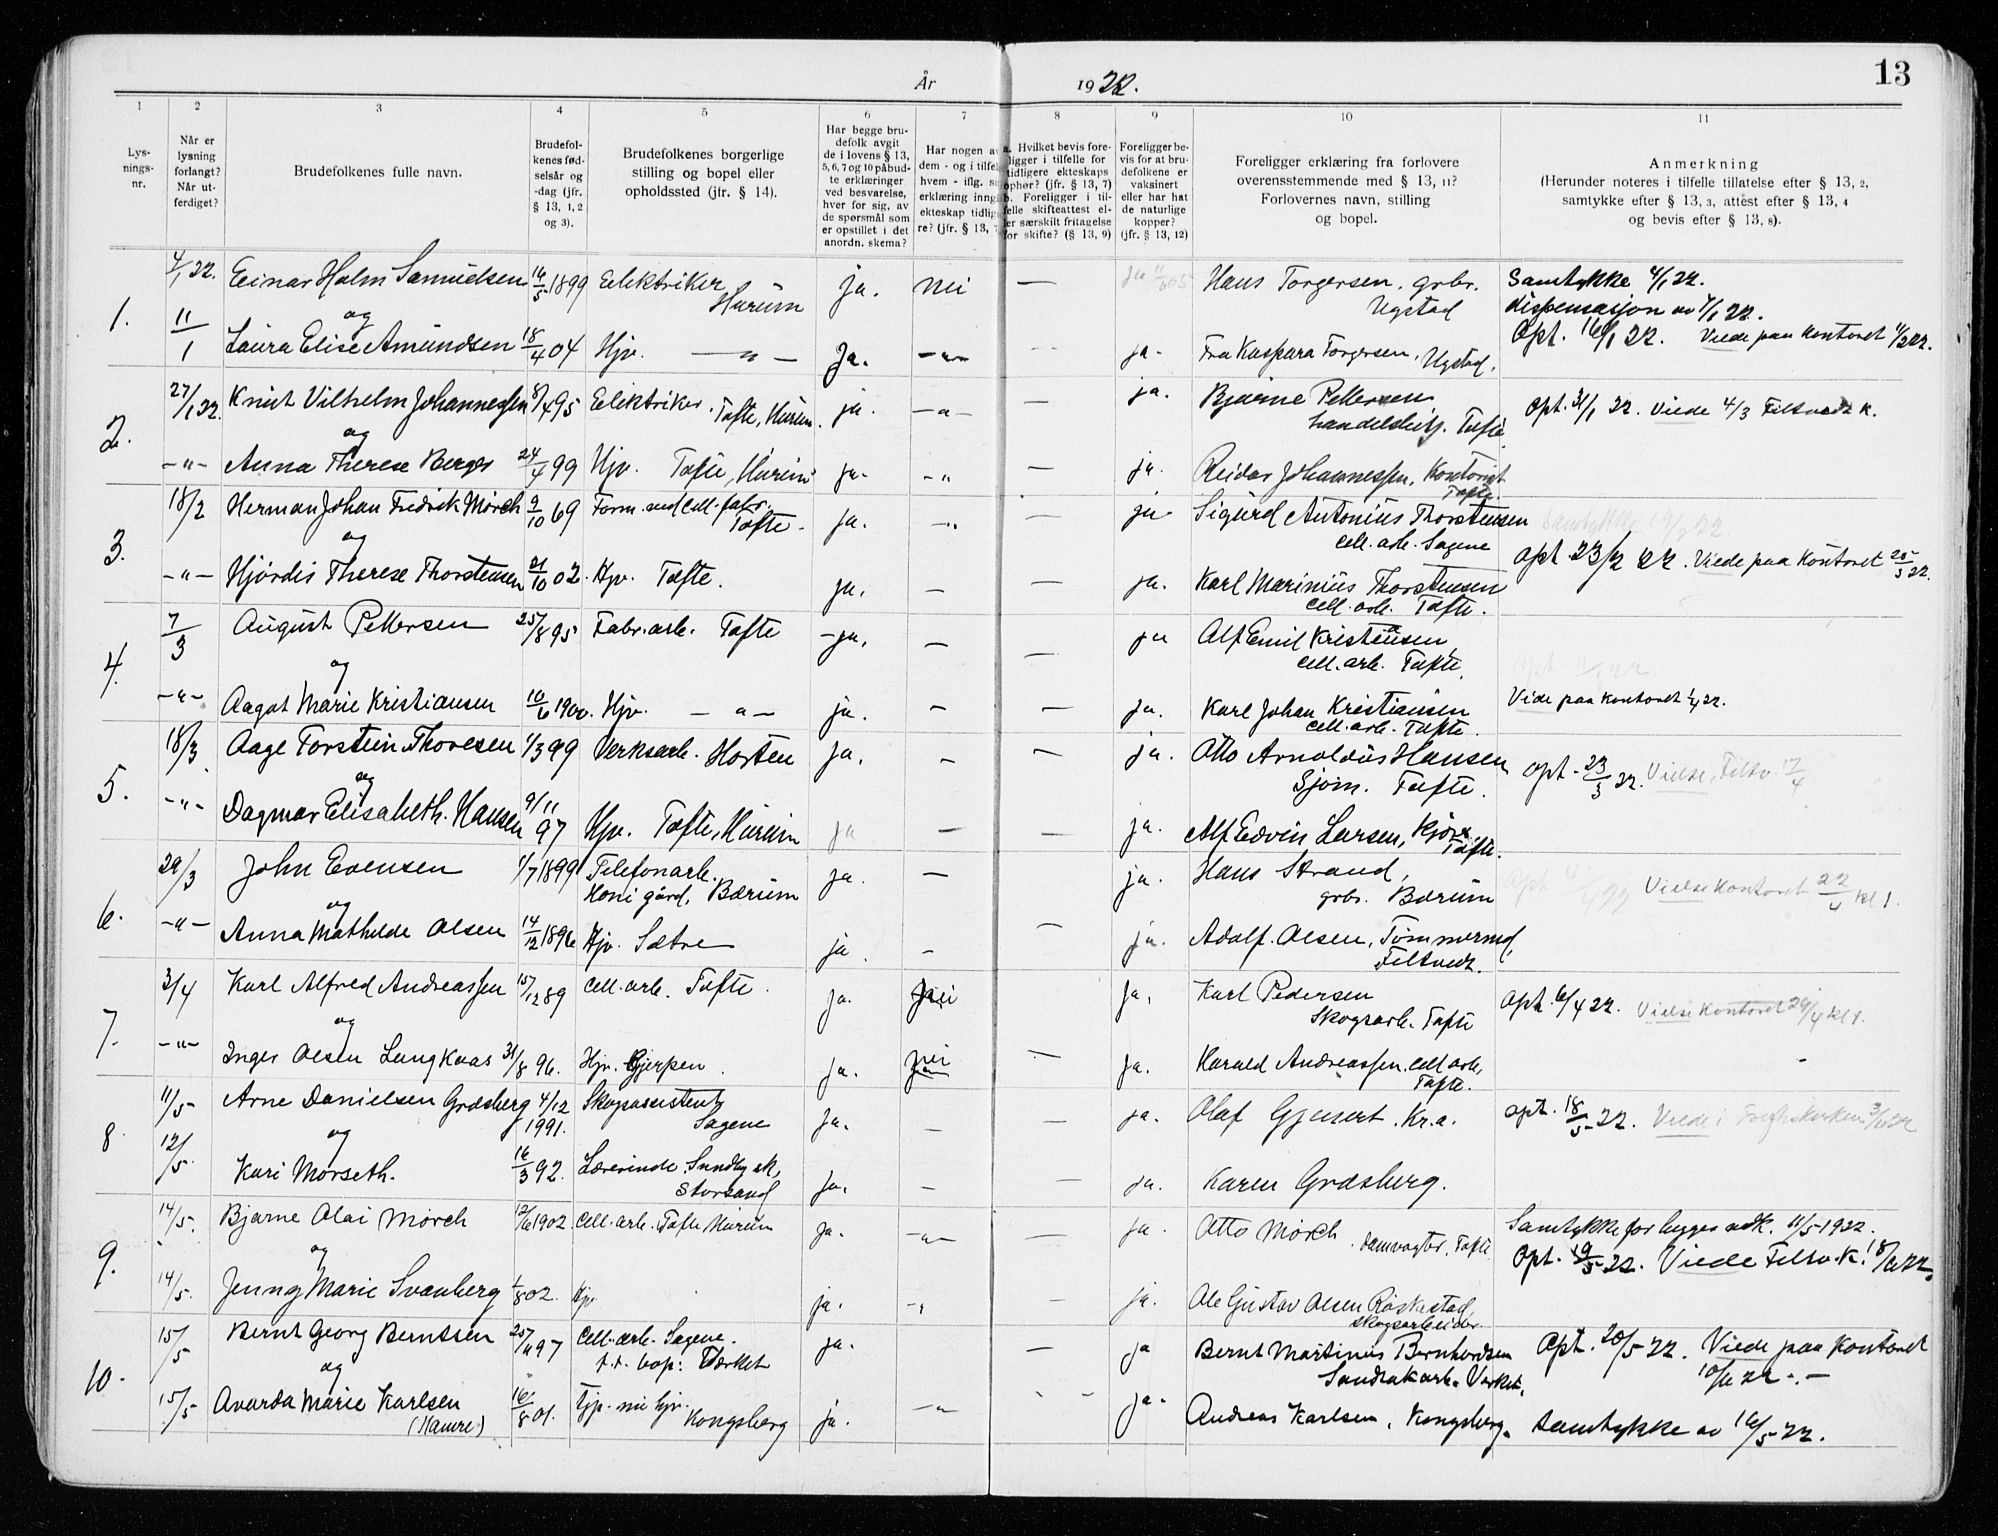 13
År 1922.
1 2 3 4 5 6 7 8 9 10 11
Lys-
nings-
nr.
Når er
lysning
forlangt?
Når ut-
ferdiget?
Brudefolkenes fulle navn.
Brudefol-
kenes fød-
selsår og
-dag (jfr.
§ 13, 1, 2
og 3).
Brudefolkenes borgerlige
stilling og bopel eller
opholdssted (jfr. § 14).
Har begge bru-
defolk avgit
de i lovens § 13,
5, 6, 7 og 10 påbud-
te erklæringer
ved besvarelse,
hver for sig, av
de spørsmål som
er opstillet i det
anordn. skema?
Har nogen av
dem - og i tilfel
hvem - iflg. s
erklæring inngå
ekteskap tidlig
re? (jfr. § 13,
a. Hvilket bevis fore-
ligger i tilfelle for
tidligere ekteskaps
ophør? (jfr. § 13, 7)
b. Foreligger i til-
felle skifteattest el-
ler særskilt fritagelse
for skifte? (§ 13, 9)
Foreligger be-
vis for at bru-
defolkene er
vaksinert
eller har hat
de naturlige
kopper?
(jfr. § 13, 12)
Foreligger erklæring fra forlovere
overensstemmende med § 13, 11?
Forlovernes navn, stilling
og bopel.
Anmerkning
(Herunder noteres i tilfelle tillatelse efter § 13, 2,
samtykke efter § 13, 3, attest efter § 13, 4
og bevis efter § 13, 8).
1. 4/1 22. Einar Holm Samuelsen 16/5 1899 Elektriker Hurum ja. nei — Hans Torgersen, grbr. Ugstad Samtykke 4/1 22.
dispensasjon av 7/1 22.
og
11/1 Laura Elise Amundsen 18/4 04 Hjv. — " — Ja. — " — — ja. Fru Kaspara Torgersen, Ugstad. Opt. 16/1 22. Viede paa Kontoret 11/2 22.
2. 27/1 22. Knut Vilhelm Johannessen 8/4 95 Elektriker. Tofte, Hurum. ja. — " — — ja. Bjarne Pettersen handelsbetj. Tofte. Opt. 31/1 22. Viede 4/3 Filtvedt k.
og
— " — Anna Therese Berger 24/4 99 Hjv. Tofte, Hurum ja. — " — ja. Reidar Johannessen, Kontorist Tofte.
3. 18/2 Herman Johan Fredrik Mørch 9/10 69 Form. ved cell. fabr. Tofte. ja. — " — ja. Sigurd Antonius Thorstensen cell. arb. Sagene Samtykke
og
— " — Hjørdis Therese Thorstensen 21/10 02. Hjv. Tofte. ja. — ja. Karl Marinius Thorstensen cell. arb. Tofte. Opt. 23/2 22. Viede paa Kontoret 25/3 22.
4. 7/3 August Pettersen 25/8 95 Fabr. arb. Tofte ja. — — ja Alf Emil Kristiansen cell. arb. Tofte.
og
— " — Aagot Marie Kristiansen 10/6 1900. Hjv. — " — ja. — — ja. Karl Johan Kristiansen cell. arb. Tofte. Vide paa Kontoret 1/4 22.
5. 18/3 Aage Torstein Thoresen 1/3 99 Verksarb. Horten ja. — — ja. Otto Arnoldus Hansen Sjøm. Tofte. Opt. 23/3 22. Vielse, Filtv. 17/4
og
— " — Dagmar Elisabeth Hansen 9/11 97 Hjv. Tofte, Hurum ja — — ja. Alf Edvin Larsen, Tofte.
6. 29/3 John Evensen 1/7 1899 Telefonarb. Honi gård, Bærum ja. — ja. Hans Strand, grbr. Bærum Opt. Vielse Kontoret 22/4 kl 1.
og
— " — Anna Mathilde Olsen 14/12 1896 Hjv. Sætre ja. — — ja. Adolf Olsen, Tømmermd, Filtvedt.
7. 3/4 Karl Alfred Andreassen 15/12 89 cell. arb. Tofte. ja. nei ja. Karl Pedersen Skogsarb. Tofte Opt. 6/4 22. Vielse Kontoret 29/4 kl 1.
og
— " — Inger Olsen Langkaas 31/8 96. Hjv. Gjerpen. ja. nei — ja. Harald Andreassen. cell arb. Tofte.
8 11/5 Arne Danielsen Grøsberg 4/12 1991. Skogassistent, Sagene ja. — — ja. Olaf Kr.a. Opt. 18/5 22. Viede i
og
12/5 Kari Morseth. 16/3 92. Lærerinde, Sundby sk, Storsand ja. — — ja. Karen Grøsberg.
9. 14/5. Bjarne Olai Mørch 12/6 1902. Cell. arb. Tofte Hurum ja. — " — — ja. Otto Mørch damvogter, Tofte Samtykke for begges vedk. 11/5-1922.
og
14/5. Jenny Marie Svanberg 1/8 02. Hjv ja. — " — ja. Ole Gustav Olsen Røskestad, skogsarbeider. Opt. 19/5 22. Viede Filtv. K. 18/6 22.
10. 15/5 Bernt Georg Berntsen 25/4 97 Cell. arb. Sagene. f. t. bop: Værket ja. — ja Bernt Martinus Bernhardsen Verket. Opt. 20/5 22. Viede paa Kontoret 10/6 22 -.-
og
15/5 Avarda Marie Karlsen (Hamre) 16/8 01. Tjp. nu hjv. Kongsberg ja. — " — ja. Andreas Karlsen, Kongsberg. Samtykke av 16/5 22.